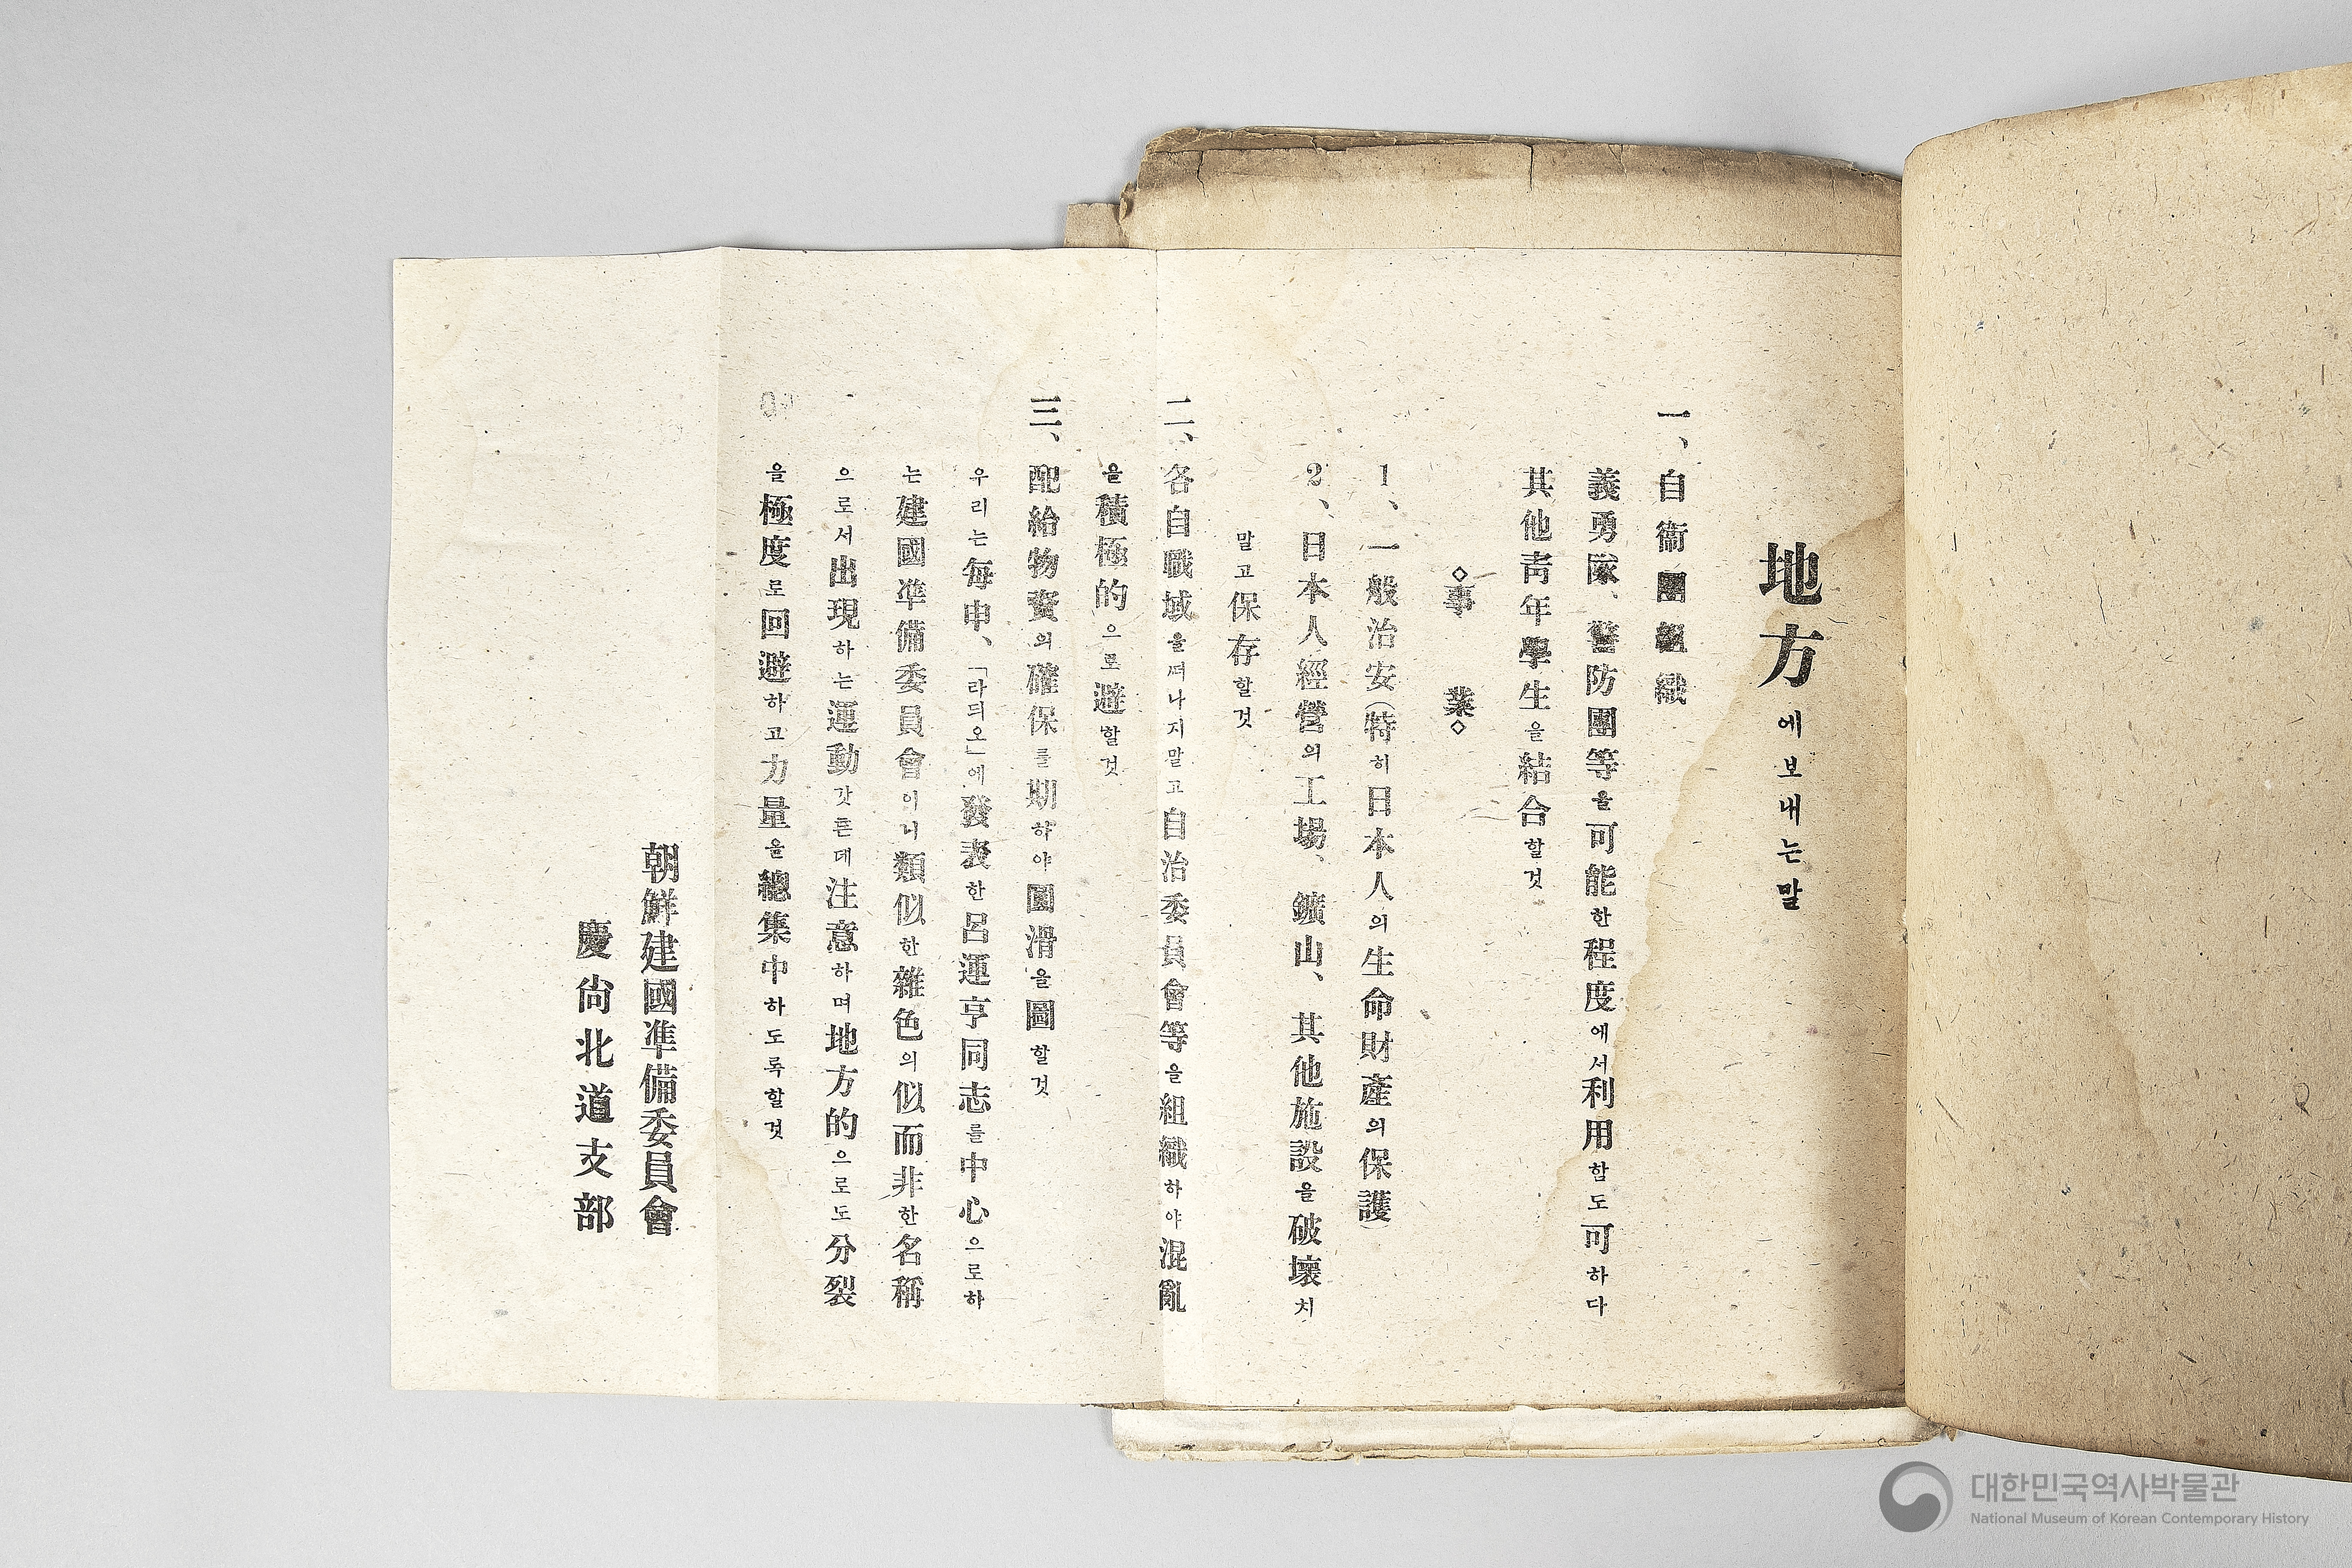 地方에보내는말
一、自衞團組織
義勇隊、警防團等을可能한程度에서利用함도可하다
其他靑年學生을結合할것
◇事 業◇
1、一般治安(特히日本人의生命財產의保護)
2、日本人經營의工場、鑛山、其他施設을破壞치
말고保存할것
二、各自職域을떠나지말고自治委員會等을組織하야混亂
을積極的으로避할것
三、配給物資의確保를期하야圓滑을圖할것
우리는每申、「라듸오」에發表한呂運亨同志를中心으로하
는建國準備委員會이니類似한雜色의似而非한名稱
으로서出現하는運動갓흔데注意하며地方的으로도分裂
을極度로回避하고力量을總集中하도록할것
朝鮮建國準備委員會
慶尙北道支部
대한민국역사박물관
National Museum of Korean Contemporary History